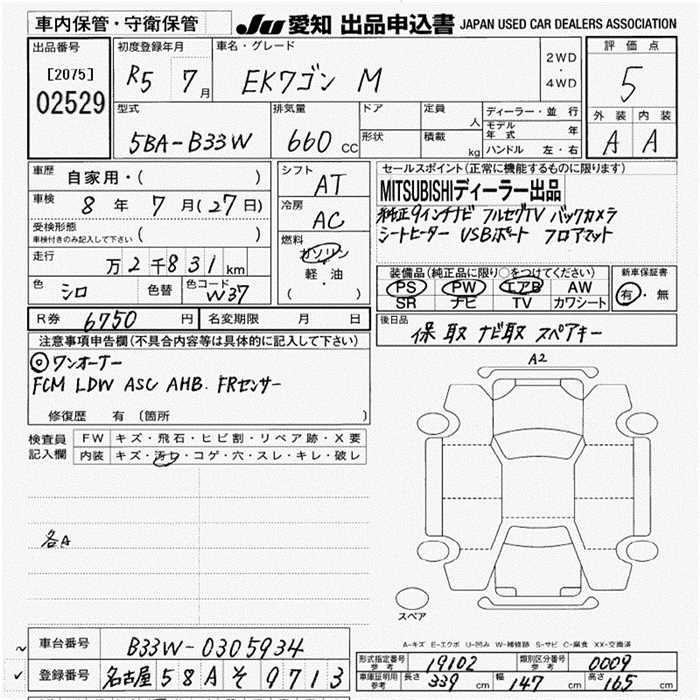 車内保管・守衛保管
JU 愛知 出品申込書 JAPAN USED CAR DEALERS ASSOCIATION
出品番号
[2075]
02529
初度登録年月
R5 7月
車名・グレード
EKワゴン M
2WD
・
4WD
評価点
5
外装 内装
A A
型式
5BA-B33W
排気量
660 CC
ドア
形状
定員 人
積載 kg
ディーラー・並行
モデル年式 年
ハンドル 左・右
車歴 自家用・( )
車検 8年 7月(27日)
受検形態
車検付きのみ記入して下さい ( )
走行 万2千831km
色 シロ 色替 色コード W37
シフト AT
冷房 AC
燃料
ガソリン
軽・油
( )
セールスポイント(正常に機能するものに限ります)
MITSUBISHIディーラー出品
純正9インチナビ フルセグTV バックカメラ
シートヒーター USBポート フロアマット
装備品(純正品に限り○をつけてください)
PS PW エアB AW
SR ナビ TV カワシート
新車保証書
有・無
R券 6750円 名変期限 月 日
後日品
保 取 ナビ取 スペアキー
注意事項申告欄(不具合内容等は具体的に記入して下さい)
◎ワンオーナー
FCM LDW ASC AHB. FRセンサー
修復歴 有 (箇所 )
検査員
記入欄
FW キズ・飛石・ヒビ割・リペア跡・X要
内装 キズ・汚れ・コゲ・穴・スレ・キレ・破レ
各A
A2
スペア
A-キズ E-エクボ U-凹み W-補修跡 S-サビ C-腐食 XX-交換済
車台番号 B33W-0305934
登録番号 名古屋 58A そ 9713
形式指定番号
参考
19102
類別区分番号
参考
0009
車庫証明用
参考
長さ 339cm 幅 147cm 高さ 165cm